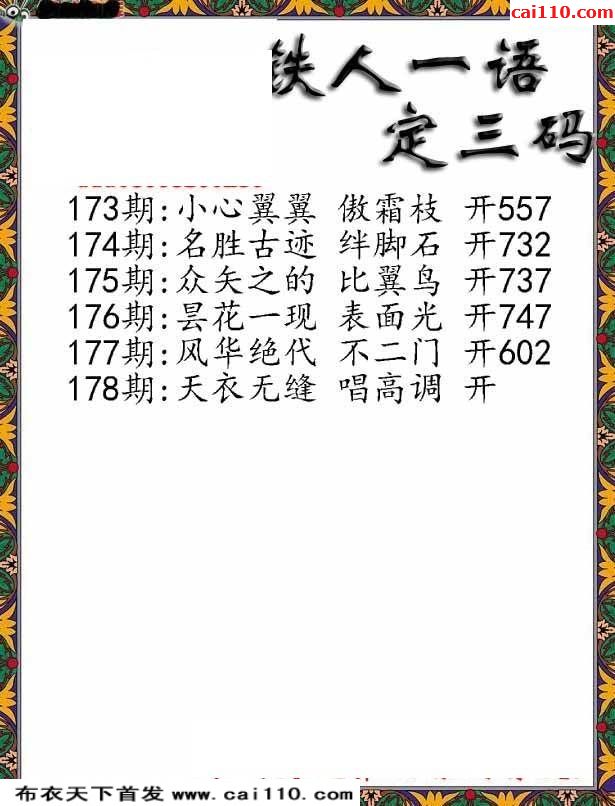 cai110.com
铁人一语
定三码
173期:小心翼翼 傲霜枝 开557
174期:名胜古迹 绊脚石 开732
175期:众矢之的 比翼鸟 开737
176期:昙花一现 表面光 开747
177期:风华绝代 不二门 开602
178期:天衣无缝 唱高调 开
布衣天下首发 www.cai110.com